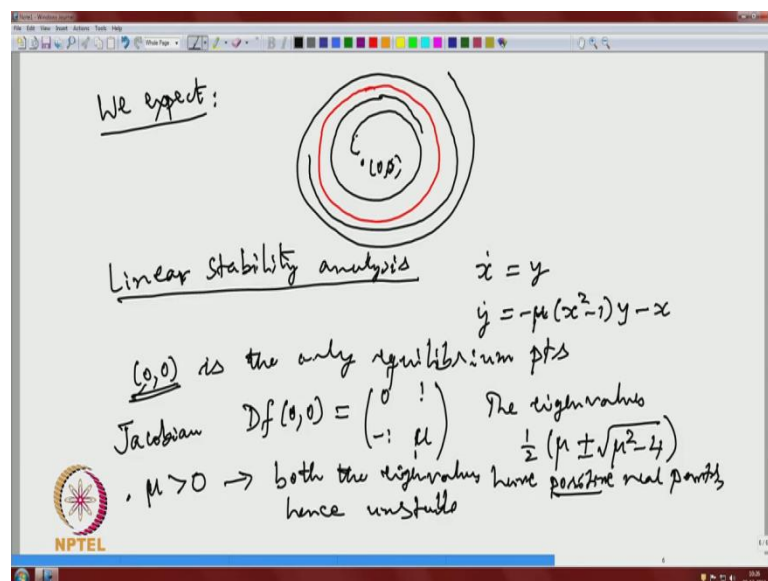 Note1 - Windows Journal
File Edit View Insert Actions Tools Help
Whole Page
B I
We expect:
(0,0)
Linear stability analysis
ẋ = y
ẏ = -μ(x²-1)y - x
(0,0) is the only equilibrium pts
Jacobian Df(0,0) = ( 0 1 -1 μ ) The eigenvalues
½ (μ ± √μ²-4)
. μ > 0 → both the eigenvalues have positive real parts,
hence unstable
NPTEL
6